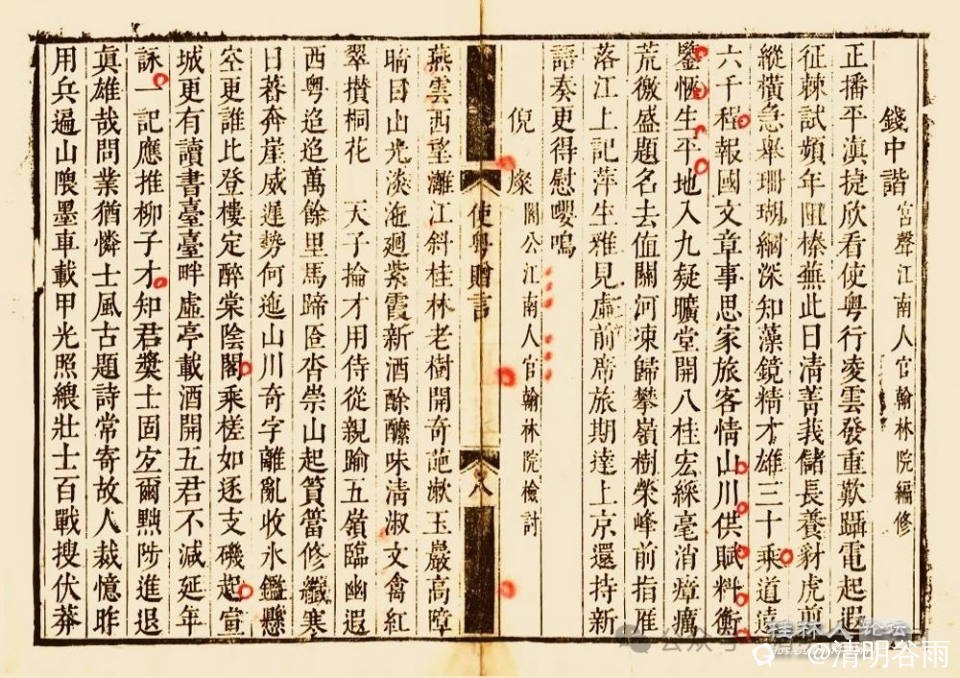 錢中諧 宮聲江南人官翰林院編修
正播平滇捷欣看使粵行凌雲發重歎躡電起遐
征棘試頻年阻榛蕪此日淸菁莪儲長養豺虎剪
縱橫急舉珊瑚網深知藻鏡精才雄三十乘道遠
六千程報國文章事思家旅客情山川供賦料衡
鑒恢生平地入九疑曠堂開八桂宏綵毫消瘴癘
荒徼盛題名去値關河凍歸攀嶺樹榮峰前指雁
落江上記萍生雅見虛前席旅期達上京還持新
語奏更得慰嚶鳴
倪燦 闇公江南人官翰林院檢討
使粵贈言
八
燕雲西望灕江斜桂林老樹開奇葩漱玉巖高障
晴日山光淡沲廻紫霞新酒酴醾味淸淑文禽紅
翠攅桐花 天子掄才用侍從親踰五嶺臨幽遐
西粵迢迢萬餘里馬蹄匼沓崇山起篔簹修纖寒
日暮奔崖威遲勢何迤山川奇字離亂收氷鑑懸
空更誰比登樓定醉棠陰閣乘槎如逐支磯起宣
城更有讀書臺臺畔虛亭載酒開五君不減延年
詠一記應推柳子才知君奬士固宏爾黜陟進退
眞雄哉問業猶憐士風古題詩常寄故人裁憶昨
用兵遍山隈墨車載甲光照纓壯士百戰搜伏莽
桂林人論坛
公众号
@清明谷雨